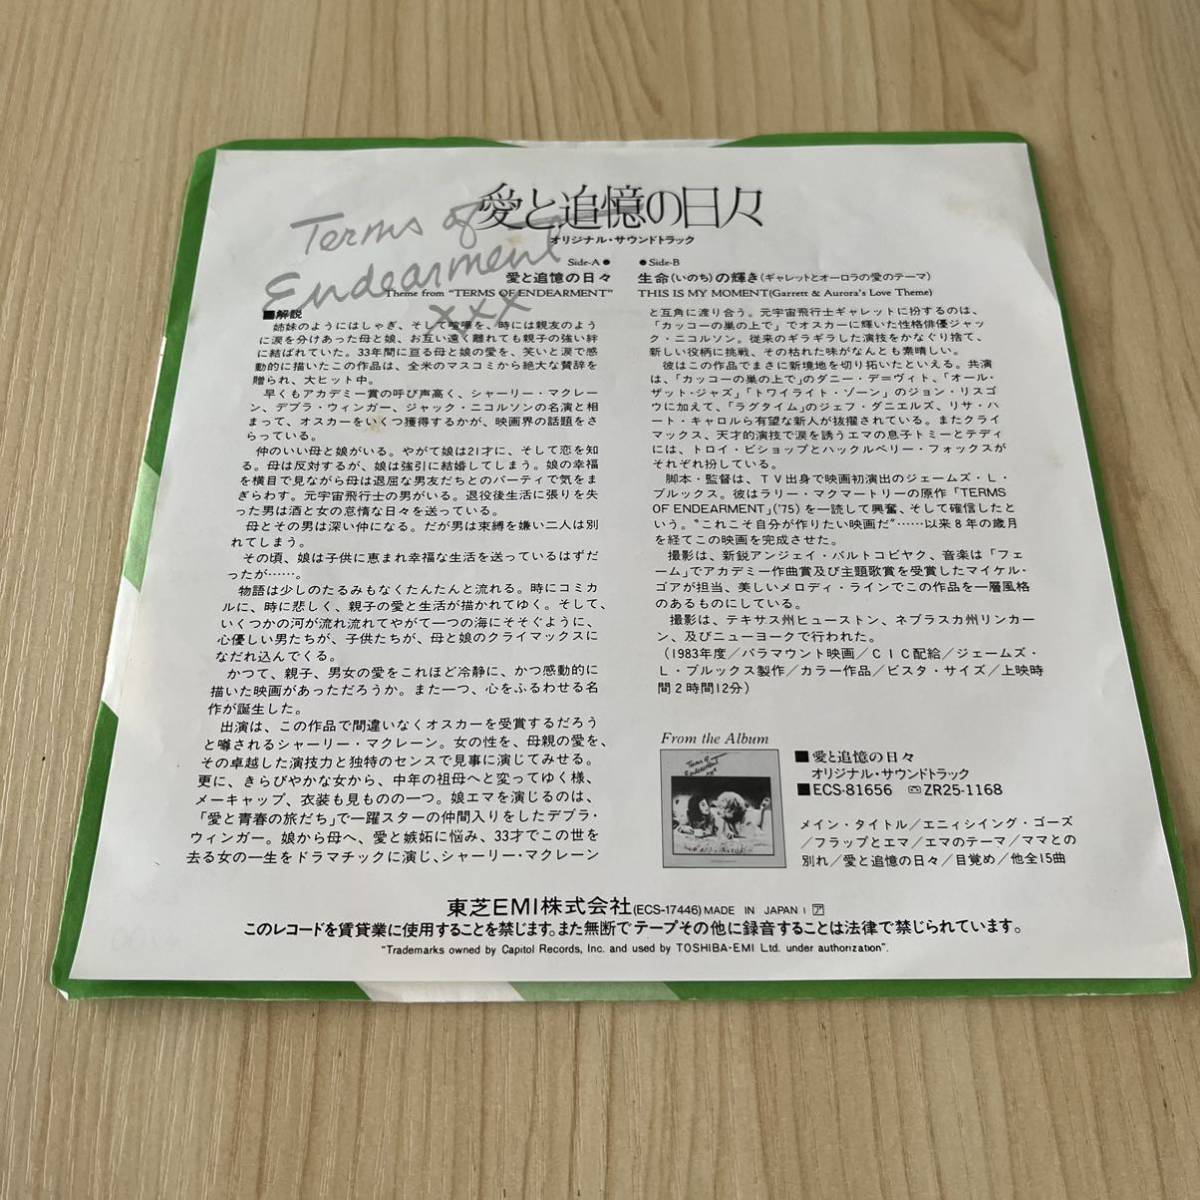 Terms of
Endearment
xxx
愛と追憶の日々
オリジナル・サウンドトラック
Side-A●
愛と追憶の日々
Theme from "TERMS OF ENDEARMENT"
●Side-B
生命(いのち)の輝き(ギャレットとオーロラの愛のテーマ)
THIS IS MY MOMENT(Garrett & Aurora's Love Theme)
■解説
姉妹のようにはしゃぎ、そして喧嘩を、時には親友のよう
に涙を分けあった母と娘、お互い遠く離れても親子の強い絆
に結ばれていた。33年間に亘る母と娘の愛を、笑いと涙で感
動的に描いたこの作品は、全米のマスコミから絶大な賛辞を
贈られ、大ヒット中。
早くもアカデミー賞の呼び声高く、シャーリー・マクレー
ン、デブラ・ウィンガー、ジャック・ニコルソンの名演と相
まって、オスカーをいくつ獲得するかが、映画界の話題をさ
らっている。
仲のいい母と娘がいる。やがて娘は21才に、そして恋を知
る。母は反対するが、娘は強引に結婚してしまう。娘の幸福
を横目で見ながら母は退屈な男友だちとのパーティで気をま
ぎらわす。元宇宙飛行士の男がいる。退役後生活に張りを失
った男は酒と女の怠惰な日々を送っている。
母とその男は深い仲になる。だが男は束縛を嫌い二人は別
れてしまう。
その頃、娘は子供に恵まれ幸福な生活を送っているはずだ
ったが……。
物語は少しのたるみもなくたんたんと流れる。時にコミカ
ルに、時に悲しく、親子の愛と生活が描かれてゆく。そして、
いくつかの河が流れ流れてやがて一つの海にそそぐように、
心優しい男たちが、子供たちが、母と娘のクライマックスに
なだれ込んでくる。
かつて、親子、男女の愛をこれほど冷静に、かつ感動的に
描いた映画があっただろうか。また一つ、心をふるわせる名
作が誕生した。
出演は、この作品で間違いなくオスカーを受賞するだろう
と噂されるシャーリー・マクレーン。女の性を、母親の愛を、
その卓越した演技力と独特のセンスで見事に演じてみせる。
更に、きらびやかな女から、中年の祖母へと変ってゆく様、
メーキャップ、衣装も見ものの一つ。娘エマを演じるのは、
「愛と青春の旅だち」で一躍スターの仲間入りをしたデブラ・
ウィンガー。娘から母へ、愛と嫉妬に悩み、33才でこの世を
去る女の一生をドラマチックに演じ、シャーリー・マクレーン
と互角に渡り合う。元宇宙飛行士ギャレットに扮するのは、
「カッコーの巣の上で」でオスカーに輝いた性格俳優ジャッ
ク・ニコルソン。従来のギラギラした演技をかなぐり捨て、
新しい役柄に挑戦、その枯れた味がなんとも素晴しい。
彼はこの作品でまさに新境地を切り拓いたといえる。共演
は、「カッコーの巣の上で」のダニー・デ＝ヴィト、「オール・
ザット・ジャズ」「トワイライト・ゾーン」のジョン・リスゴ
ウに加えて、「ラグタイム」のジェフ・ダニエルズ、リサ・ハ
ート・キャロルら有望な新人が抜擢されている。またクライ
マックス、天才的演技で涙を誘うエマの息子トミーとテディ
には、トロイ・ビショップとハックルベリー・フォックスが
それぞれ扮している。
脚本・監督は、TV出身で映画初演出のジェームズ・L・
ブルックス。彼はラリー・マクマートリーの原作「TERMS
OF ENDEARMENT」('75)を一読して興奮、そして確信したと
いう。"これこそ自分が作りたい映画だ"……以来8年の歳月
を経てこの映画を完成させた。
撮影は、新鋭アンジェイ・バルトコビヤク、音楽は「フェ
ーム」でアカデミー作曲賞及び主題歌賞を受賞したマイケル・
ゴアが担当、美しいメロディ・ラインでこの作品を一層風格
のあるものにしている。
撮影は、テキサス州ヒューストン、ネブラスカ州リンカー
ン、及びニューヨークで行われた。
(1983年度/パラマウント映画/CIC配給/ジェームズ・
L・ブルックス製作/カラー作品/ビスタ・サイズ/上映時
間2時間12分)
From the Album
Terms of
Endearment
■愛と追憶の日々
オリジナル・サウンドトラック
■ECS-81656 ZR25-1168
メイン・タイトル/エニィシイング・ゴーズ
/フラップとエマ/エマのテーマ/ママとの
別れ/愛と追憶の日々/目覚め/他全15曲
東芝EMI株式会社(ECS-17446) MADE IN JAPAN I ア
このレコードを賃貸業に使用することを禁じます。また無断でテープその他に録音することは法律で禁じられています。
"Trademarks owned by Capitol Records, Inc. and used by TOSHIBA-EMI Ltd. under authorization".